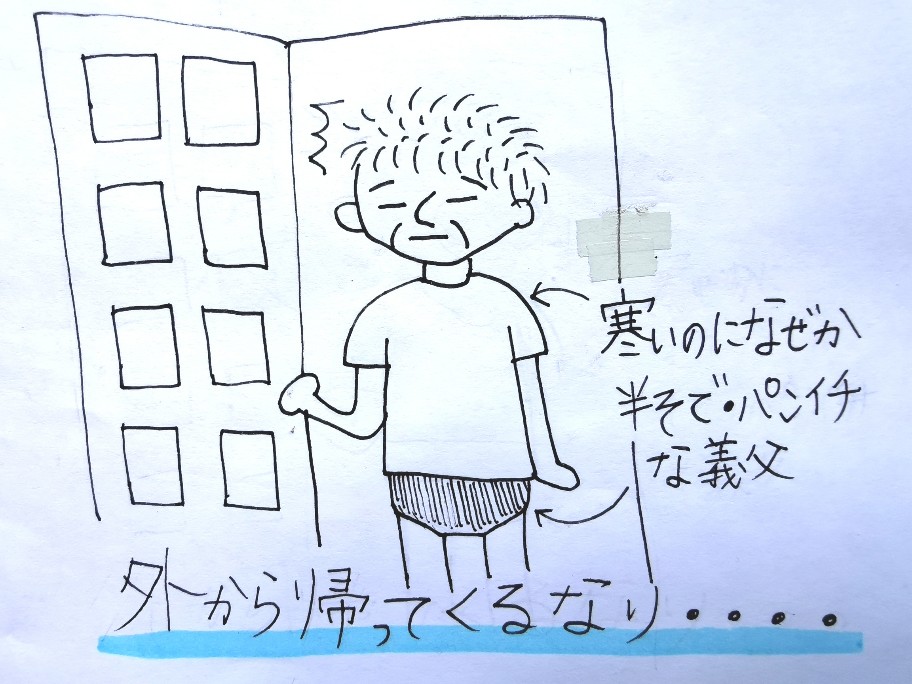 寒いのになぜか
半そで・パンイチ
な義父
外から帰ってくるなり・・・・